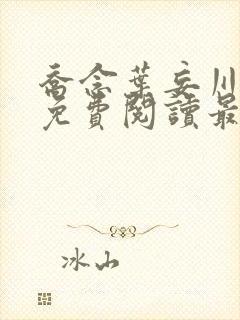 喬念葉妄川
免費閱讀最
冰山